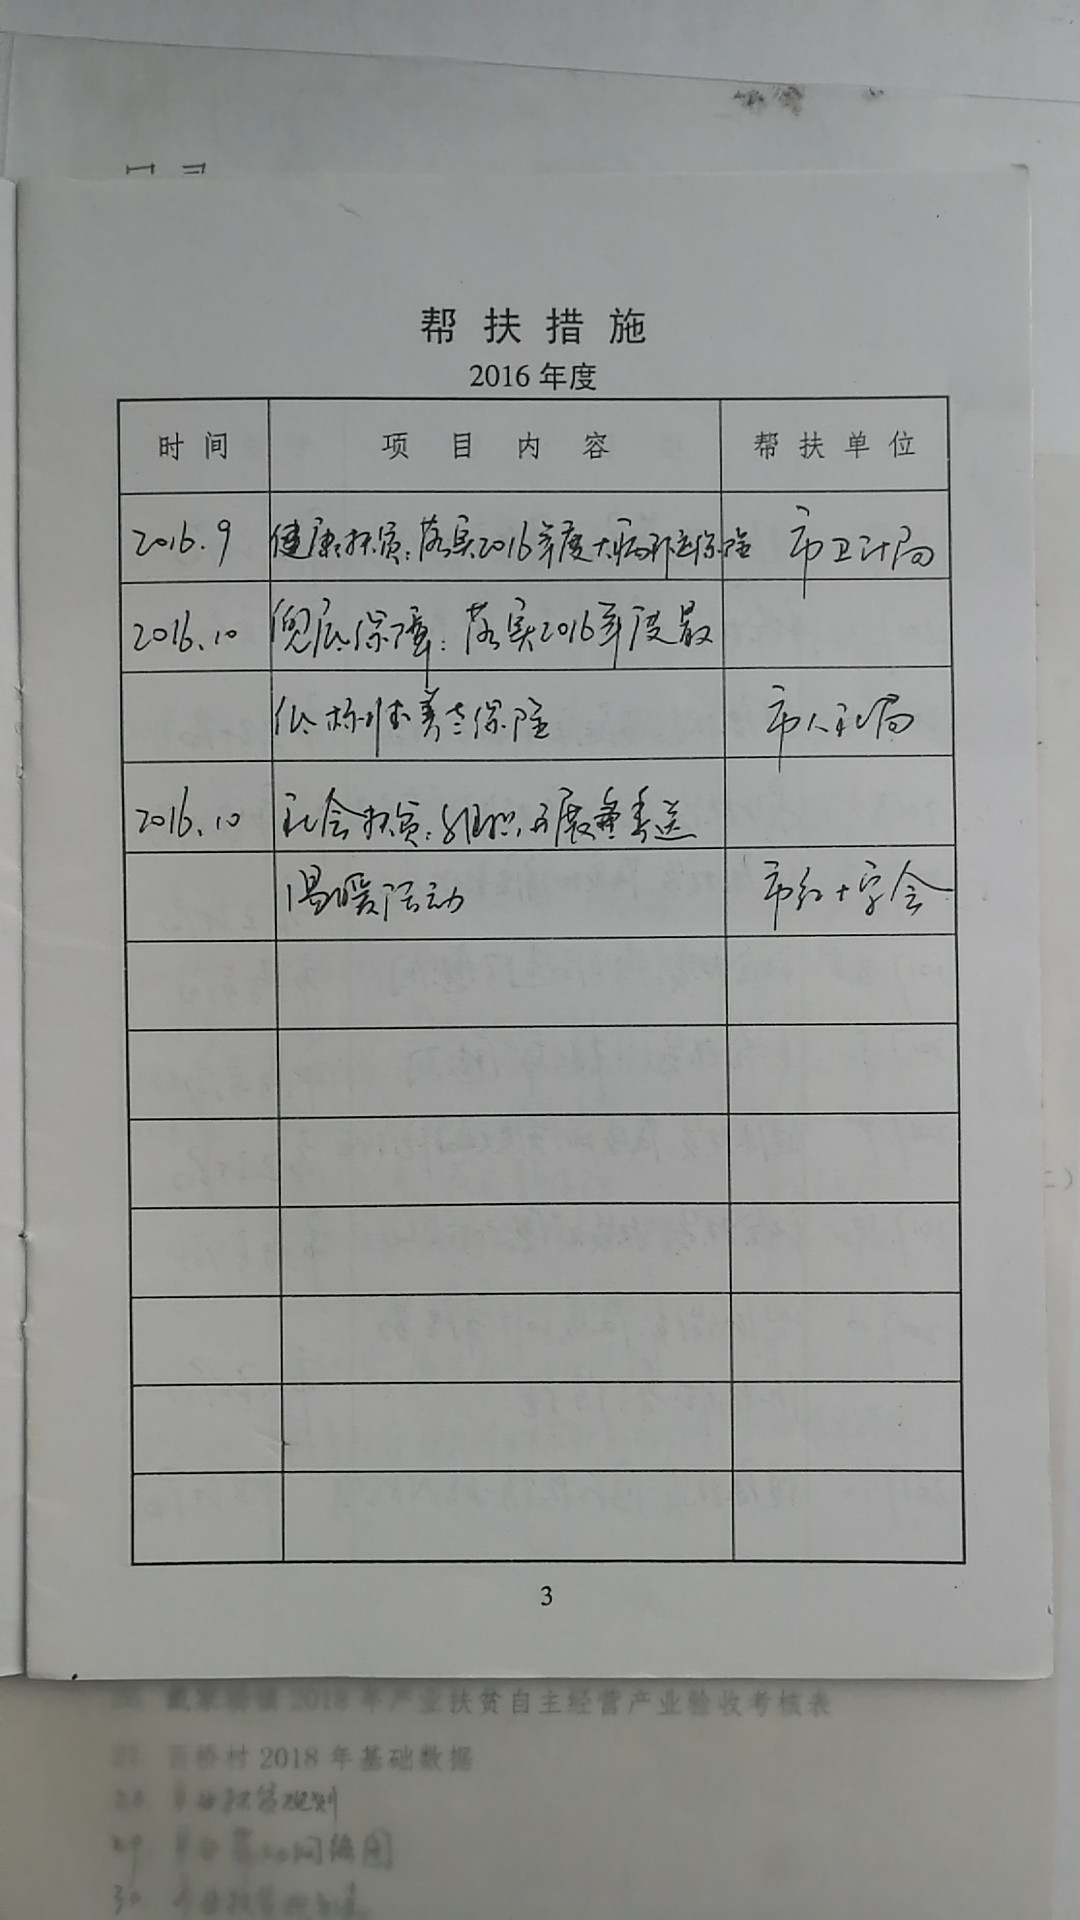 帮扶措施
2016年度
时间 项目内容 帮扶单位
2016.9 健康扶贫:落实2016年度大病补充保险 市卫计局
2016.10 兜底保障:落实2016年度最
低标准养老保险 市人社局
2016.10 社会扶贫:组织开展重季送
温暖活动 市红十字会
3
2018年产业扶贫自主经营产业验收考核表
27. 桥村2018年基础数据
30.